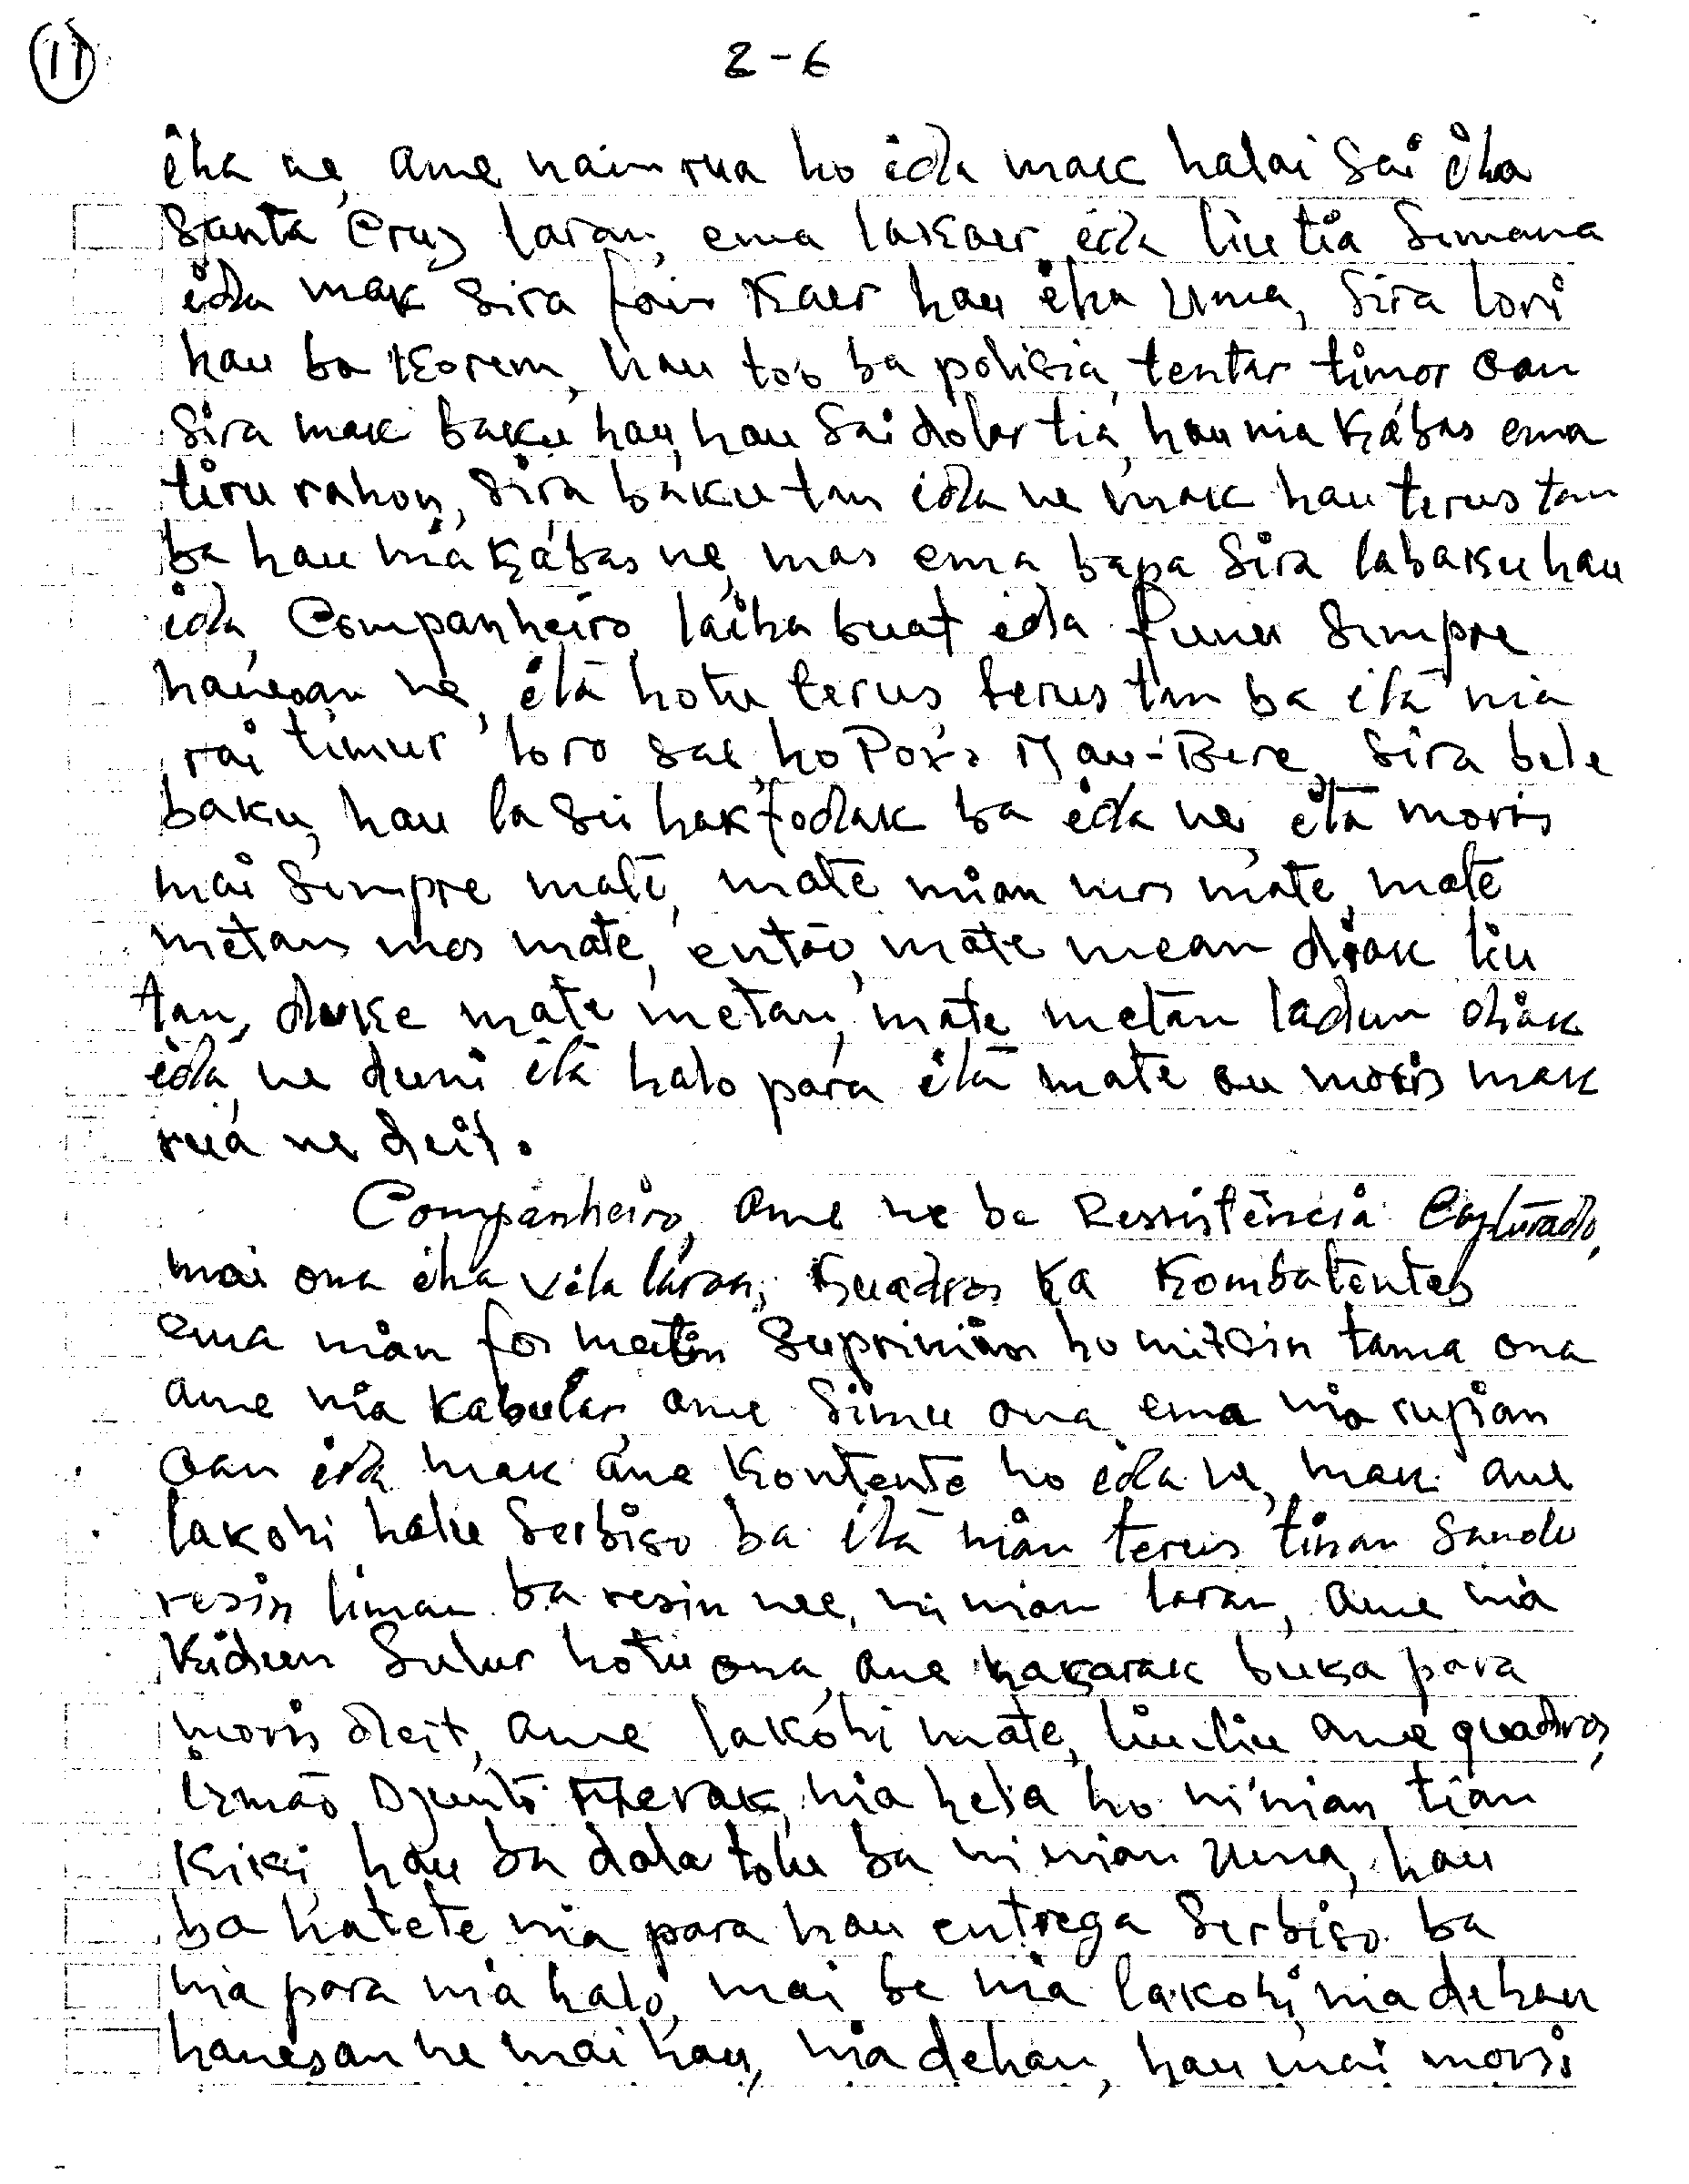 11
2-6
iha ne, ame nain rua ho ida mak halai sai iha
Santa Cruz laran, ema lakaer ida liu tia Semana
ida mak sira foin Kaer hau iha Uma, Sira lori
hau ba Korem, hau too ba polisia, tentar timor oan
Sira mak baku hau, hau Sai dolar tia, hau nia Kábas ema
tiru rahon, Sira baku tan ida ne mak hau terus tan
ba hau nia Kábas ne, mas ema bapa Sira labaku hau
ida, Companheiro, laiha buat ida funu Sempre
hanesan ne, itá hotu terus, terus tan ba itá nia
rai timur loro sae, ho Povo Mau-Bere, Sira bele
baku, hau la sei hakfodak ba ida ne, itá moris
mai Sempre mate, mate mian mos mate, mate
metan mos mate, então, mate mean diak liu
tan, duke mate metan, mate metan ladun diak
ida, ne duni itá halo para itá mate ou moris mak
rua ne deit.
Companheiro, ame ne ba Ressistência Capturado,
mai ona iha vila laran, Kuadros Ka Kombatentes
ema nian fos metin Suprimian ho mitsin tama ona
ame nia Kabular, ame Simu ona ema nia rupian
oan ida mak ame Kontente ho ida ne, mak ame
lakohi halu Serbiso ba itá nian terus tinan Sanolu
resin liman ba resin nee, ni nian laran, ame nia
Kidun Sulur hotu ona, ame hakarak buka para
moris deit, ame lakóhi mate, liu-liu ame quadros,
Irmão Djunto nia hela ho ni nian tian
Kiki, hau ba dala tolu ba ni nian Uma, hau
ba hatete nia para hau entrega Serbiso ba
nia para nia halo, mai be nia lakohi, nia dehan
hanesan ne mai hau, nia dehan, hau mai moris